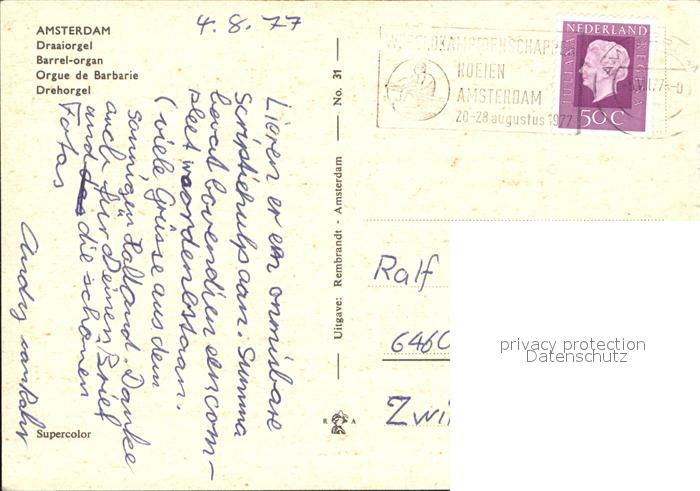 4.8.77
AMSTERDAM
Draaiorgel
Barrel-organ
Orgue de Barbarie
Drehorgel
Lieren er een onmisbare
scriptiehulp aan. Summa
bevat bovendien een com-
pleet woordenlst aan.
(viele Grüsse aus dem
sonnigen Holland. Danke
auch für Deinen Brief
und die schönen
Fotos
Andy
Supercolor
Uitgave: Rembrandt - Amsterdam
No. 31
R A
WERELDKAMPIOENSCHAPPEN
ROEIEN
AMSTERDAM
20-28 augustus 1977
NEDERLAND
JULIANA REGINA
50 C
Ralf
6460
Zwi
privacy protection
Datenschutz